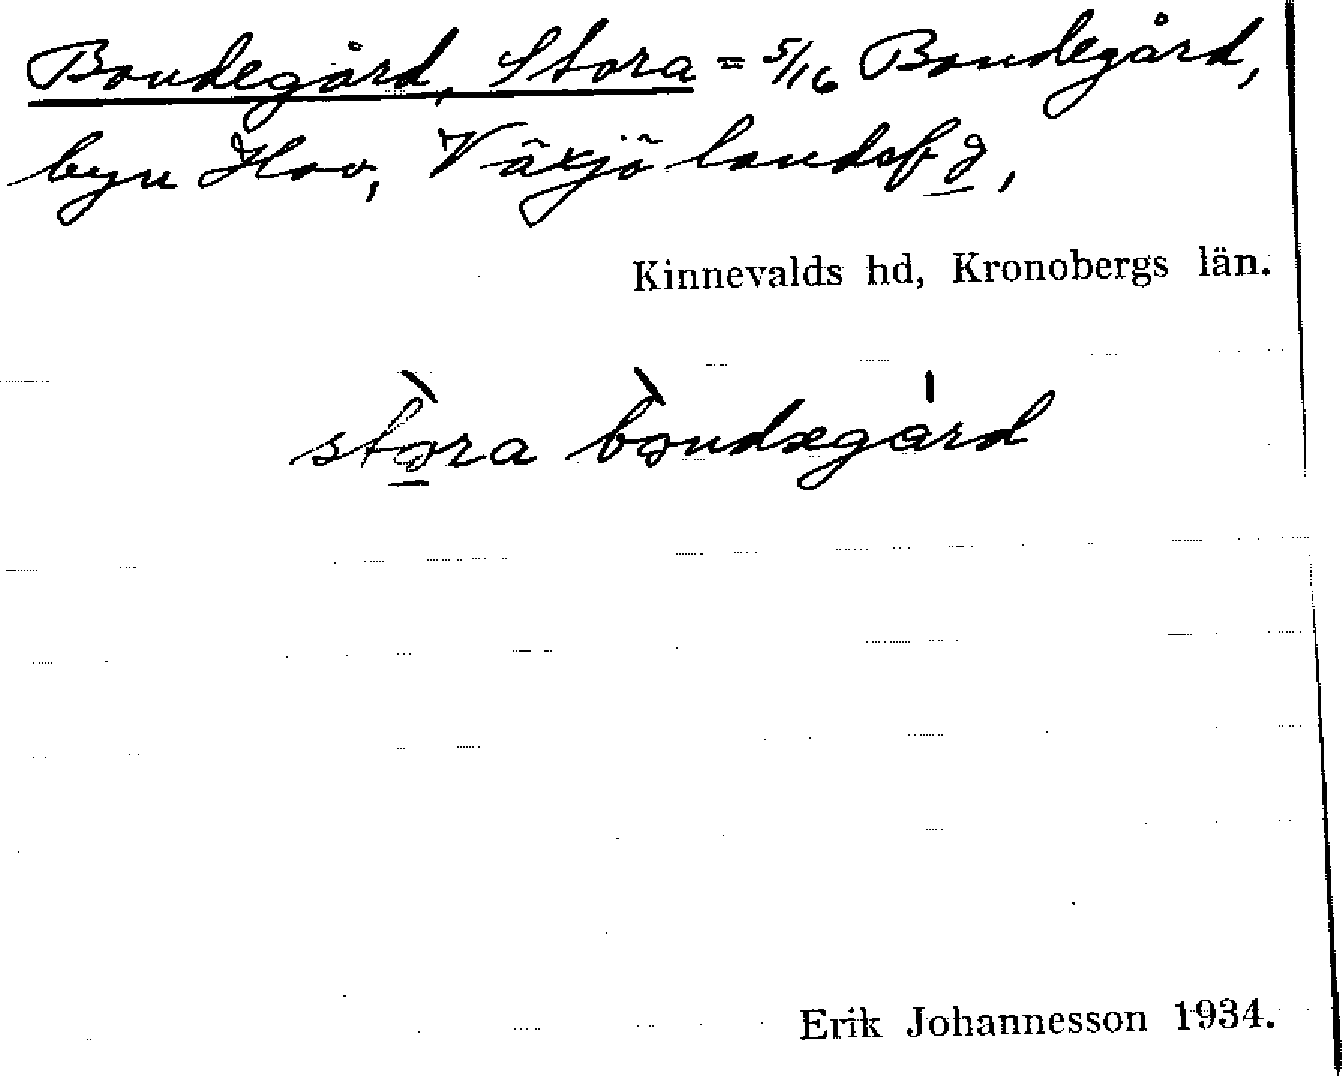 Bondegård, Stora = 5/16 Bondegård,
byn Hov, Växjö landsf d,
Kinnevalds hd, Kronobergs län.
stora bondægård
Erik Johannesson 1934.